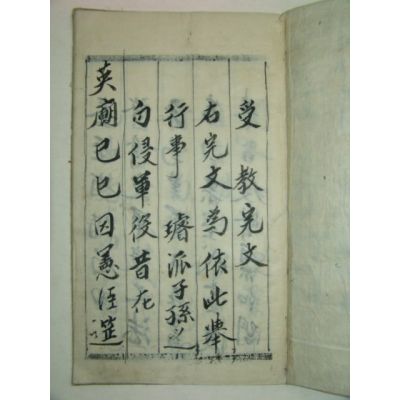 受教完文
右完文為依此擧
行事 璿派子孫之
勿侵軍役昔在
英廟己巳因憲臣筵